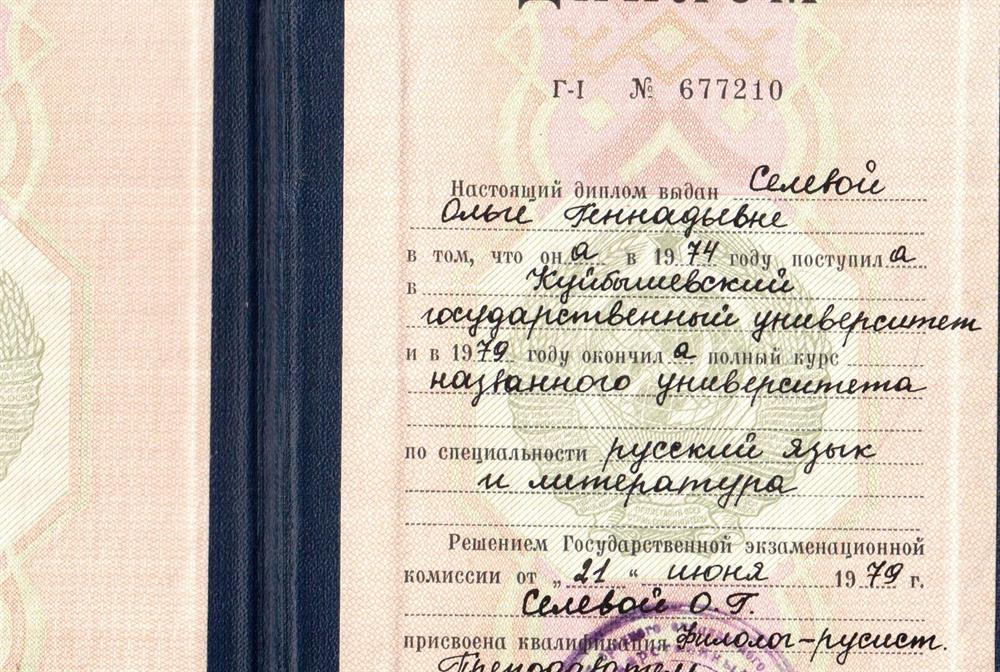 ДИПЛОМ
Г-I № 677210
Настоящий диплом выдан Селевой
Ольге Геннадьевне
в том, что она в 1974 году поступила
в Куйбышевский
государственный университет
и в 1979 году окончила полный курс
названного университета
по специальности русский язык
и литература
Решением Государственной экзаменационной
комиссии от „ 21 “ июня 1979 г.
Селевой О.Г.
присвоена квалификация Филолог-русист.
Преподаватель